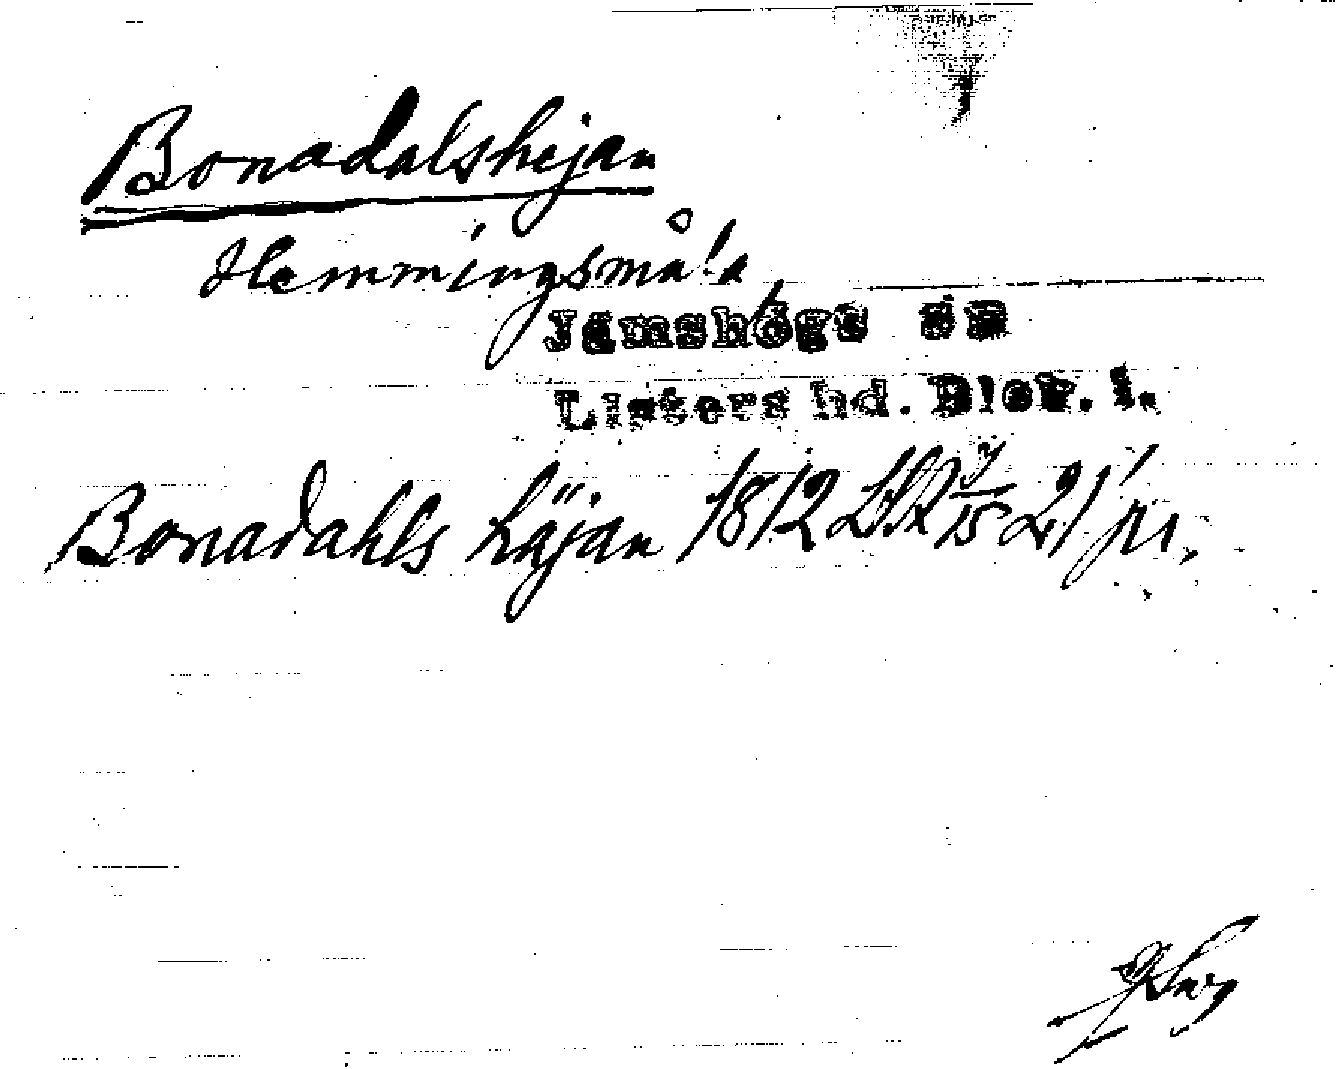 Bonadalshejan
Hemmingsmåla
Jämshögs sn
Listers hd. Blek. l.
Bonadahls häjan 1812 LSR